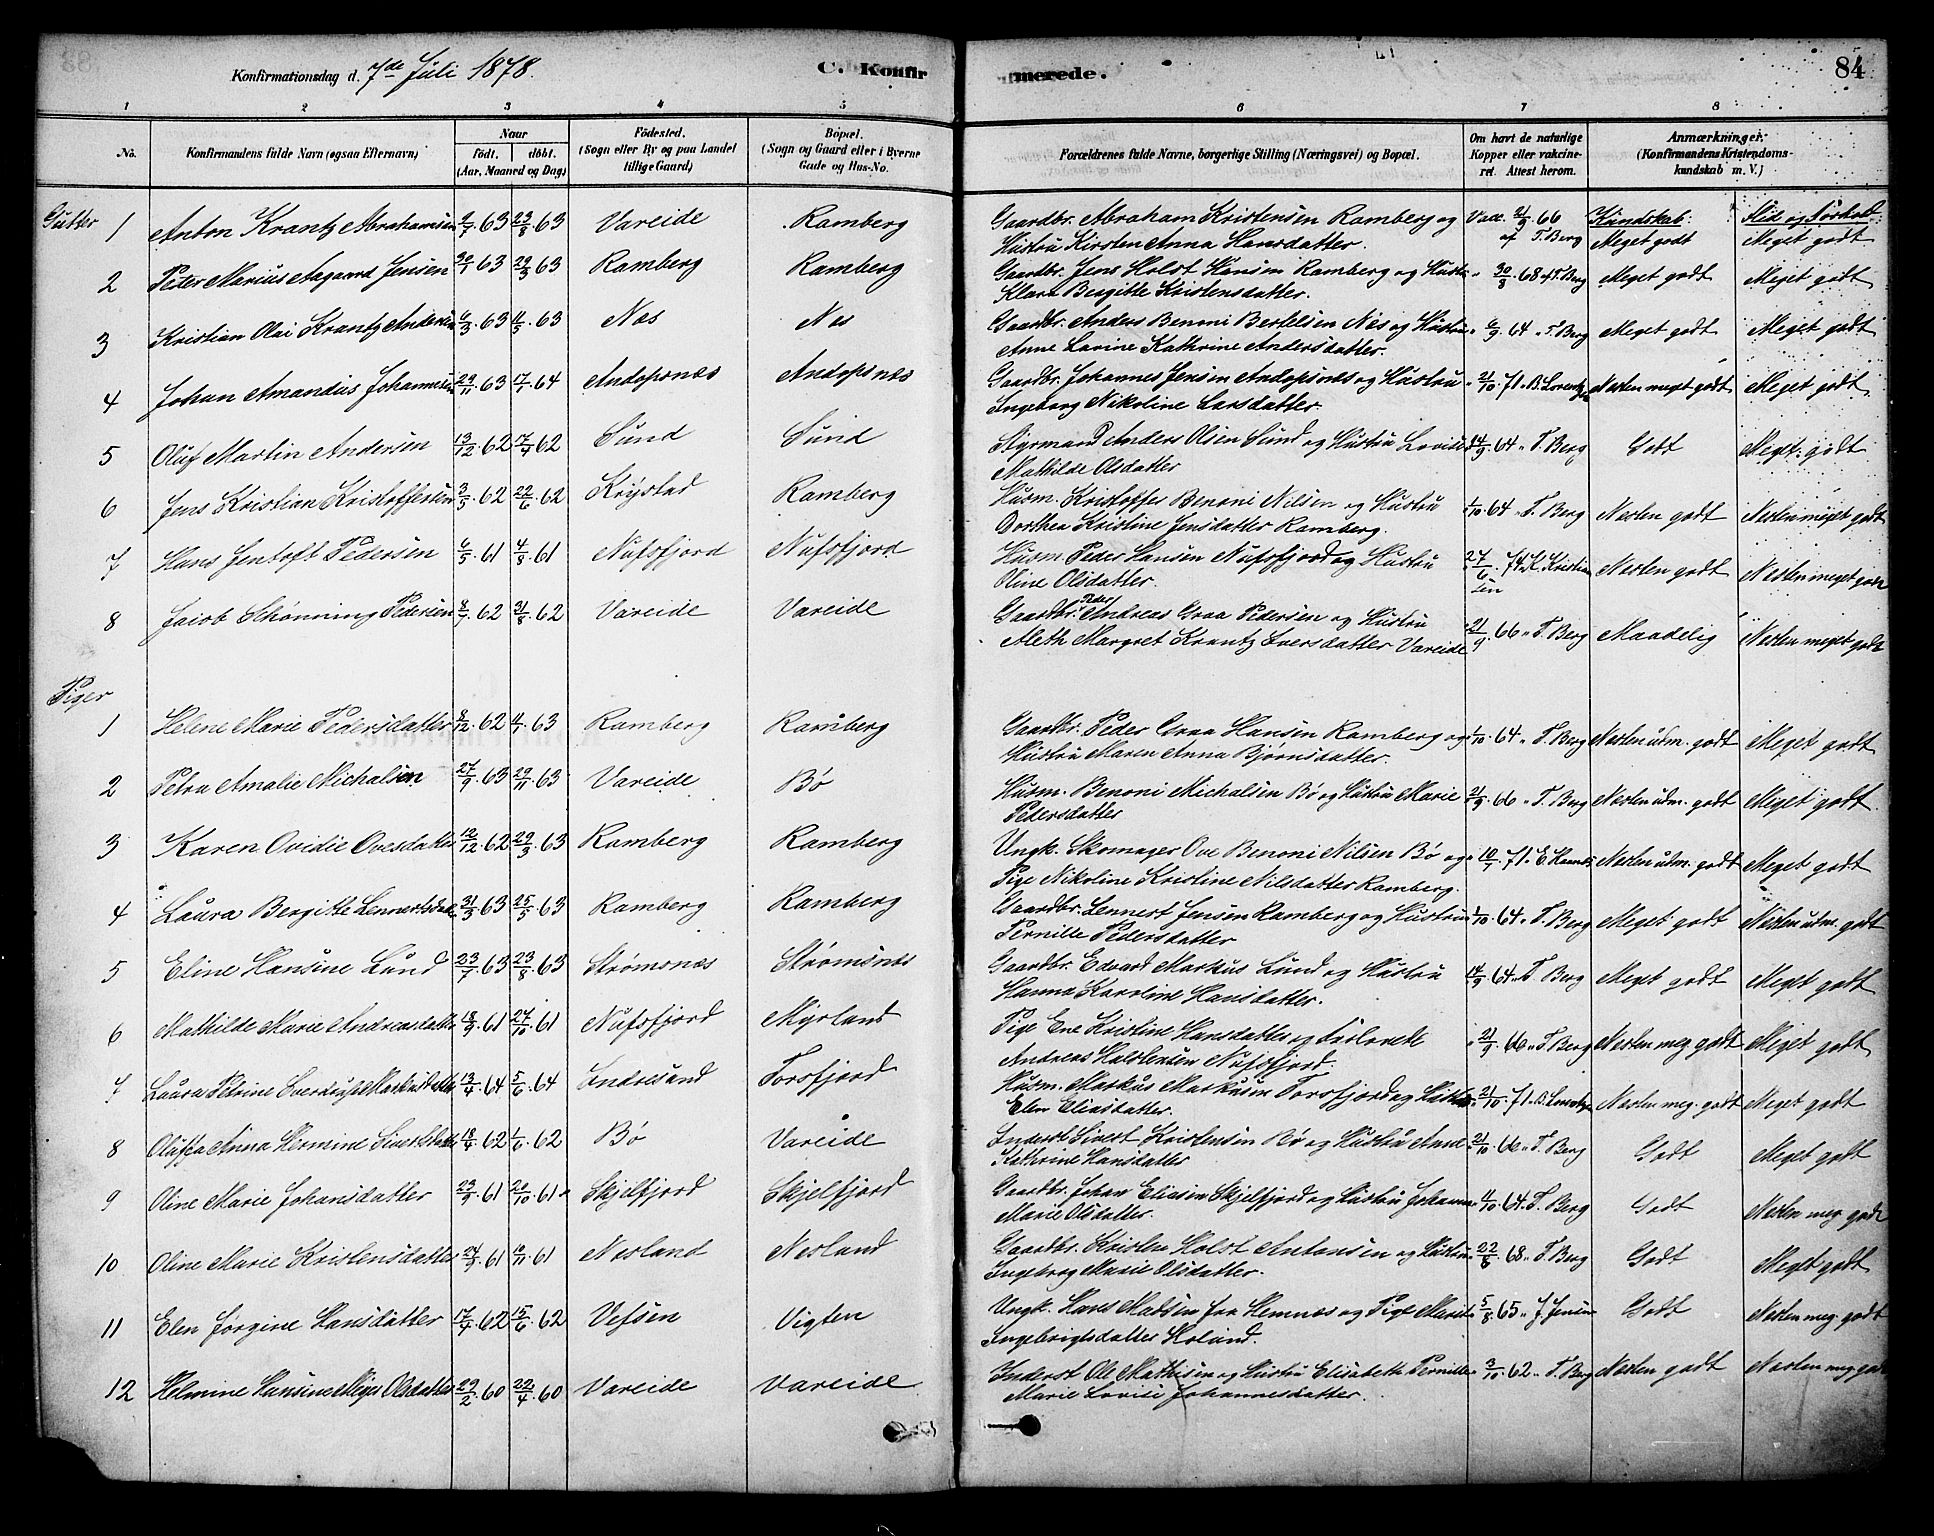 Konfirmationsdag d. 7de Juli 1878.
C. Konfirmerede.
84
1 2 3 4 5 6 7 8
No.
Konfirmandens fulde Navn (ogsaa Efternavn)
Naar
födt. döbt.
(Aar, Maaned og Dag)
Födested.
(Sogn eller By og paa Landet
tillige Gaard)
Bopæl.
(Sogn og Gaard eller i Byerne
Gade og Hus-No.
Forældrenes fulde Navne, borgerlige Stilling (Næringsvei) og Bopæl.
Om havt de naturlige
Kopper eller vakcine-
ret. Attest herom.
Anmærkninger.
(Konfirmandens Kristendoms-
kundskab m. V.)
Gutter 1 Anton Krantz Abrahamsen 2/7 63 23/8 63 Vareide Ramberg Gaardbr. Abraham Kristensen Ramberg og Vacc. 21/9 66 Kundskab: Flid og Forhold:
Hustru Kirsten Anna Hansdatter. af T. Berg Meget godt Meget godt
2 Peter Marius Aagaard Jensen 30/1 63 29/3 63 Ramberg Ramberg Gaardbr. Jens Holst Hansen Ramberg og Hustru " 30/8 68 af T. Berg Meget godt Meget godt
Klara Bergitte Kristensdatter.
3 Kristian Olai Krantz Andersen 6/3 63 11/5 63 Nes Nes Gaardbr. Anders Benoni Bertelsen Nes og Hustru " 6/9 64 " T. Berg Meget godt Meget godt
Anne Lavine Kathrine Andersdatter.
4 Johan Amandus Johannesen 29/11 63 17/1 64 Andopsnæs Andopsnæs Gaardbr. Johannes Jensen Andopsnæs og Hustru " 21/10 71 " B. Lorentzen Næsten meget godt Meget godt
Ingeborg Nikoline Larsdatter.
5 Oluf Martin Andersen 13/12 62 17/4 62 Sund Sund Styrmand Anders Olsen Sund og Hustru Lovise 14/9 64 " T. Berg Godt Meget godt
Mathilde Olsdatter
6 Jens Kristian Kristoffersen 3/5 62 22/6 62 Krystad Ramberg Husm. Kristoffer Benoni Nilsen og Hustru 1/10 64 " T. Berg Næsten godt Næsten meget godt
Dorthea Kristine Jensdatter Ramberg.
7 Hans Jentoft Pedersen 6/5 61 4/8 61 Nufsfjord Nufsfjord Husm. Peder Hansen Nufsfjord og Hustru 27/6 74 " K. Kristian Næsten godt Næsten meget godt
Oline Olsdatter. sen
8 Jacob Schønning Pedersen 8/7 62 31/8 62 Vareide Vareide Gaardbr. Peder Andreas Graa Pedersen og Hustru 21/9 66 " T. Berg Maadelig Næsten meget godt
Aleth Margret Krantz Iversdatter Vareide
Piger
1 Helene Marie Pedersdatter 8/12 62 4/1 63 Ramberg Ramberg Gaardbr. Peder Graa Hansen Ramberg og 1/10 64 " T. Berg Næsten udm. godt Meget godt
Hustru Maren Anna Bjørnsdatter.
2 Petra Amalie Michalsen 27/9 63 29/11 63 Vareide Bö Husm. Benoni Michalsen Bö og Hustru Marie 21/9 66 " T. Berg Næsten udm. godt Meget godt
Pedersdatter
3 Karen Ovidie Ovesdatter 12/12 62 29/3 63 Ramberg Ramberg Ungk. Skomager Ove Benoni Nilsen Bö og 10/7 71 Næsten udm. godt Meget godt
Pige Nikoline Kristine Nilsdatter Ramberg.
4 Laura Bergitte Lennertsdatter 31/3 63 25/5 63 Ramberg Ramberg Gaardbr. Lennert Jensen Ramberg og Hustru 1/10 64 " T. Berg Meget godt Næsten udm. godt
Pernille Pedersdatter
5 Eline Hansine Lund 23/7 63 23/8 63 Strømsnæs Strømsnæs Gaardbr. Edvard Markus Lund og Hustru 14/9 64 " T. Berg Meget godt Meget godt
Hanna Karoline Hansdatter.
6 Mathilde Marie Andreasdatter 18/9 61 27/10 61 Nufsfjord Myrland Pige Ene Kristine Hansdatter og Forlovede 21/9 66 " T. Berg Næsten meg. godt Meget godt
Andreas Halstensen Nufsfjord.
7 Laura Petrine Markusdatter 13/4 64 5/6 64 Indresand Torsfjord Husm. Markus Markusen Torsfjord og Hustru 21/10 71 " B. Lorentzen Næsten meg. godt Meget godt
Elen Eliasdatter.
8 Oluffa Anna Hermine Sivertsdatter 18/4 62 1/6 62 Bö Vareide Inderst Sivert Kristensen Bö og Hustru Anne 21/10 66 " T. Berg Godt Meget godt
Kathrine Hansdatter
9 Oline Marie Johansdatter 23/9 61 20/10 61 Skjelfjord Skjelfjord Gaardbr. Johan Eliasen Skjelfjord og Hustru Johanna 11/10 64 T. Berg Godt Næsten meg. godt
Marie Olsdatter.
10 Oline Marie Kristensdatter 24/9 61 10/11 61 Nesland Nesland Gaardbr. Kristen Holst Antonsen og Hustru 22/8 68 " T. Berg Godt Meget godt
Ingebrog Marie Olsdatter.
11 Elen Jørgine Hansdatter 17/4 62 15/6 62 Vefsen Vigten Ungk. Hans Madsen fra Hemnæs og Pige Marit 5/8 65 " J. Jensen Godt Næsten meg. godt
Ingebrigtsdatter Holand.
12 Helmine Hansine Olsdatter 29/2 60 22/4 60 Vareide Vareide Inderst Ole Mathisen og Hustru Elisabeth Pernille 3/10 62 " T. Berg Næsten godt Næsten meg. godt
Marie Lovise Johannesdatter.